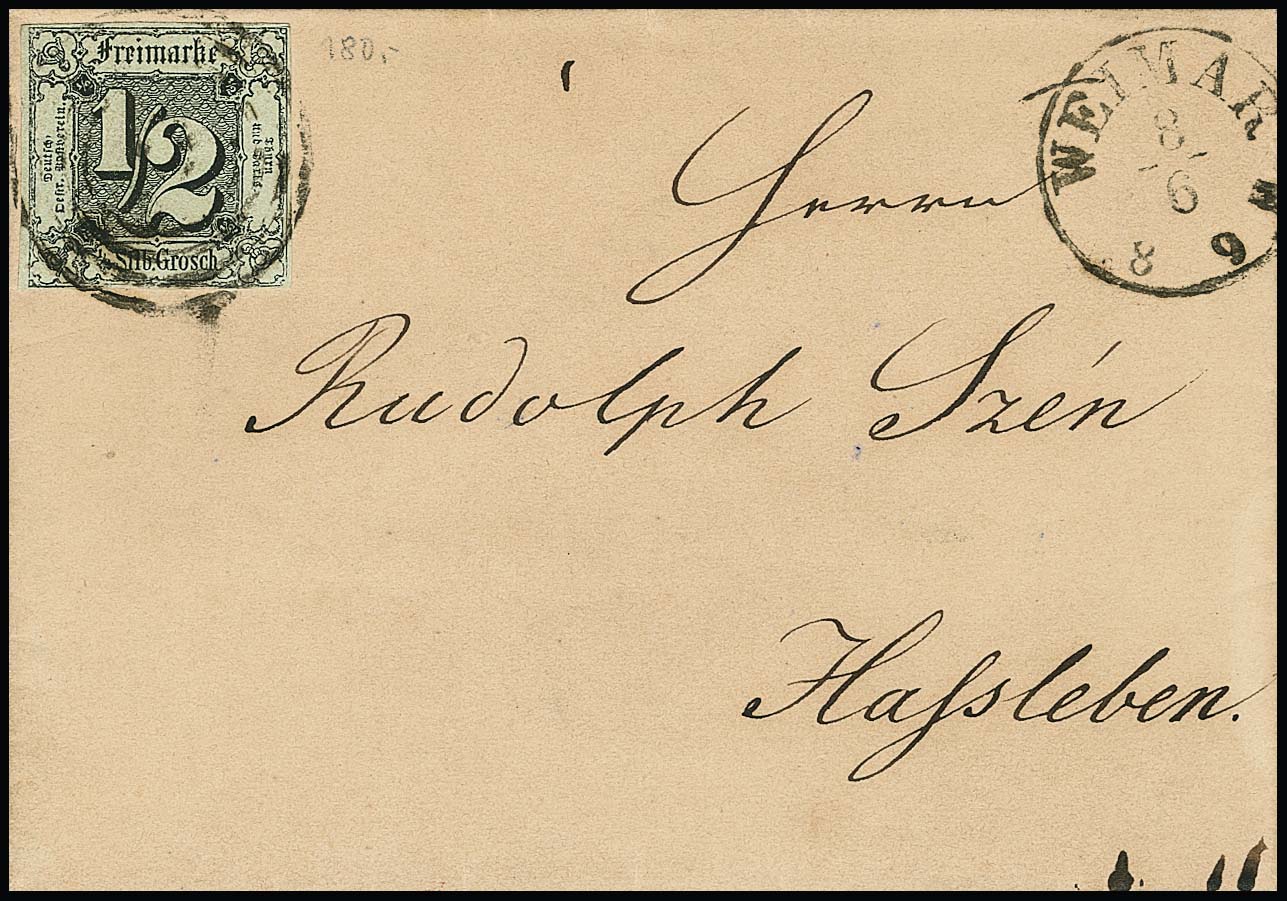 Freimarke
Deutsch-
Oestr. Postverein.
1/2
Thurn
und Taxis
1/2 Silb. Grosch
180,-
WEIMAR
8
6
8 9
Herrn
Rudolph Szén
Haſsleben.